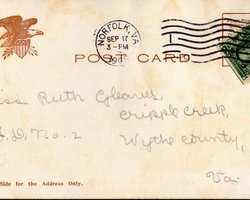 NORFOLK, VA.
SEP 17
3-PM
POST CARD
iss Ruth Gleaves,
Cripple Creek,
D. No. 2
Wythe County,
Va.
Side for the Address Only.